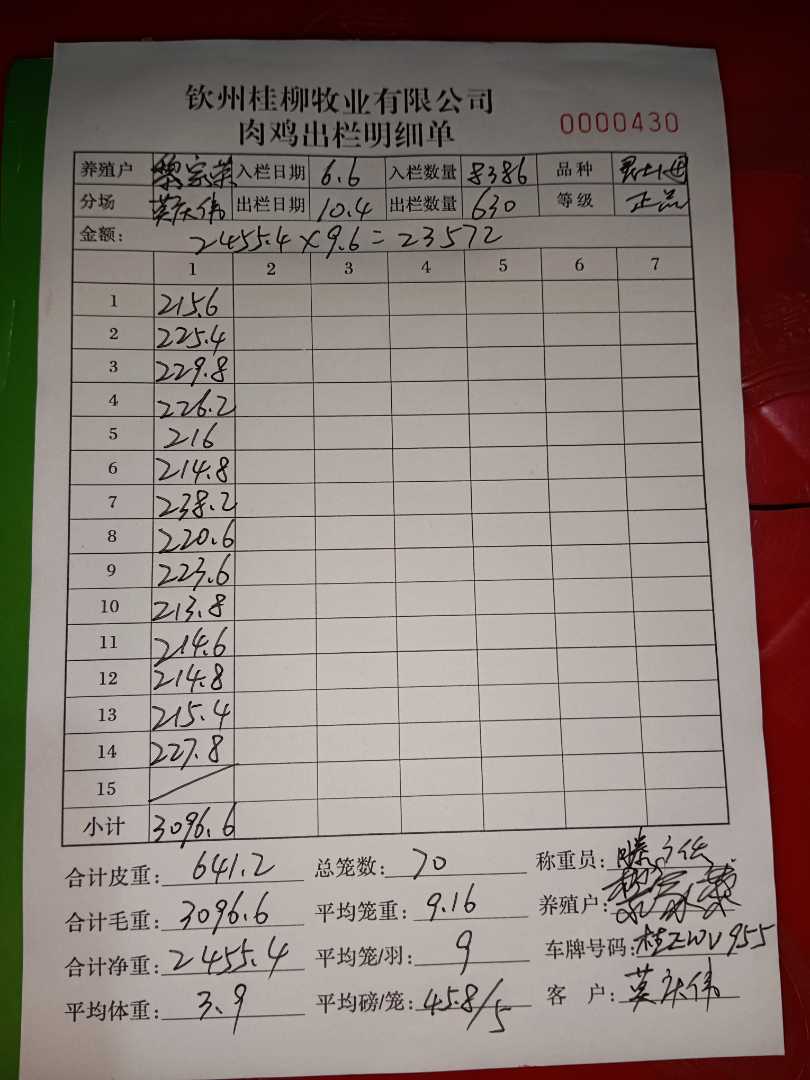 钦州桂柳牧业有限公司
肉鸡出栏明细单 0000430
养殖户 黎家荣 入栏日期 6.6 入栏数量 8386 品种
分场 莫庆伟 出栏日期 10.4 出栏数量 630 等级 正品
金额: 2455.4×9.6=23572
1 2 3 4 5 6 7
1 215.6
2 225.4
3 229.8
4 226.2
5 216
6 214.8
7 238.2
8 220.6
9 223.6
10 213.8
11 214.6
12 214.8
13 215.4
14 227.8
15
小计 3096.6
合计皮重: 641.2 总笼数: 70 称重员:
合计毛重: 3096.6 平均笼重: 9.16 养殖户:
合计净重: 2455.4 平均笼/羽: 9 车牌号码: 桂ZWV955
平均体重: 3.9 平均磅/笼: 45.8/5 客 户: 莫庆伟